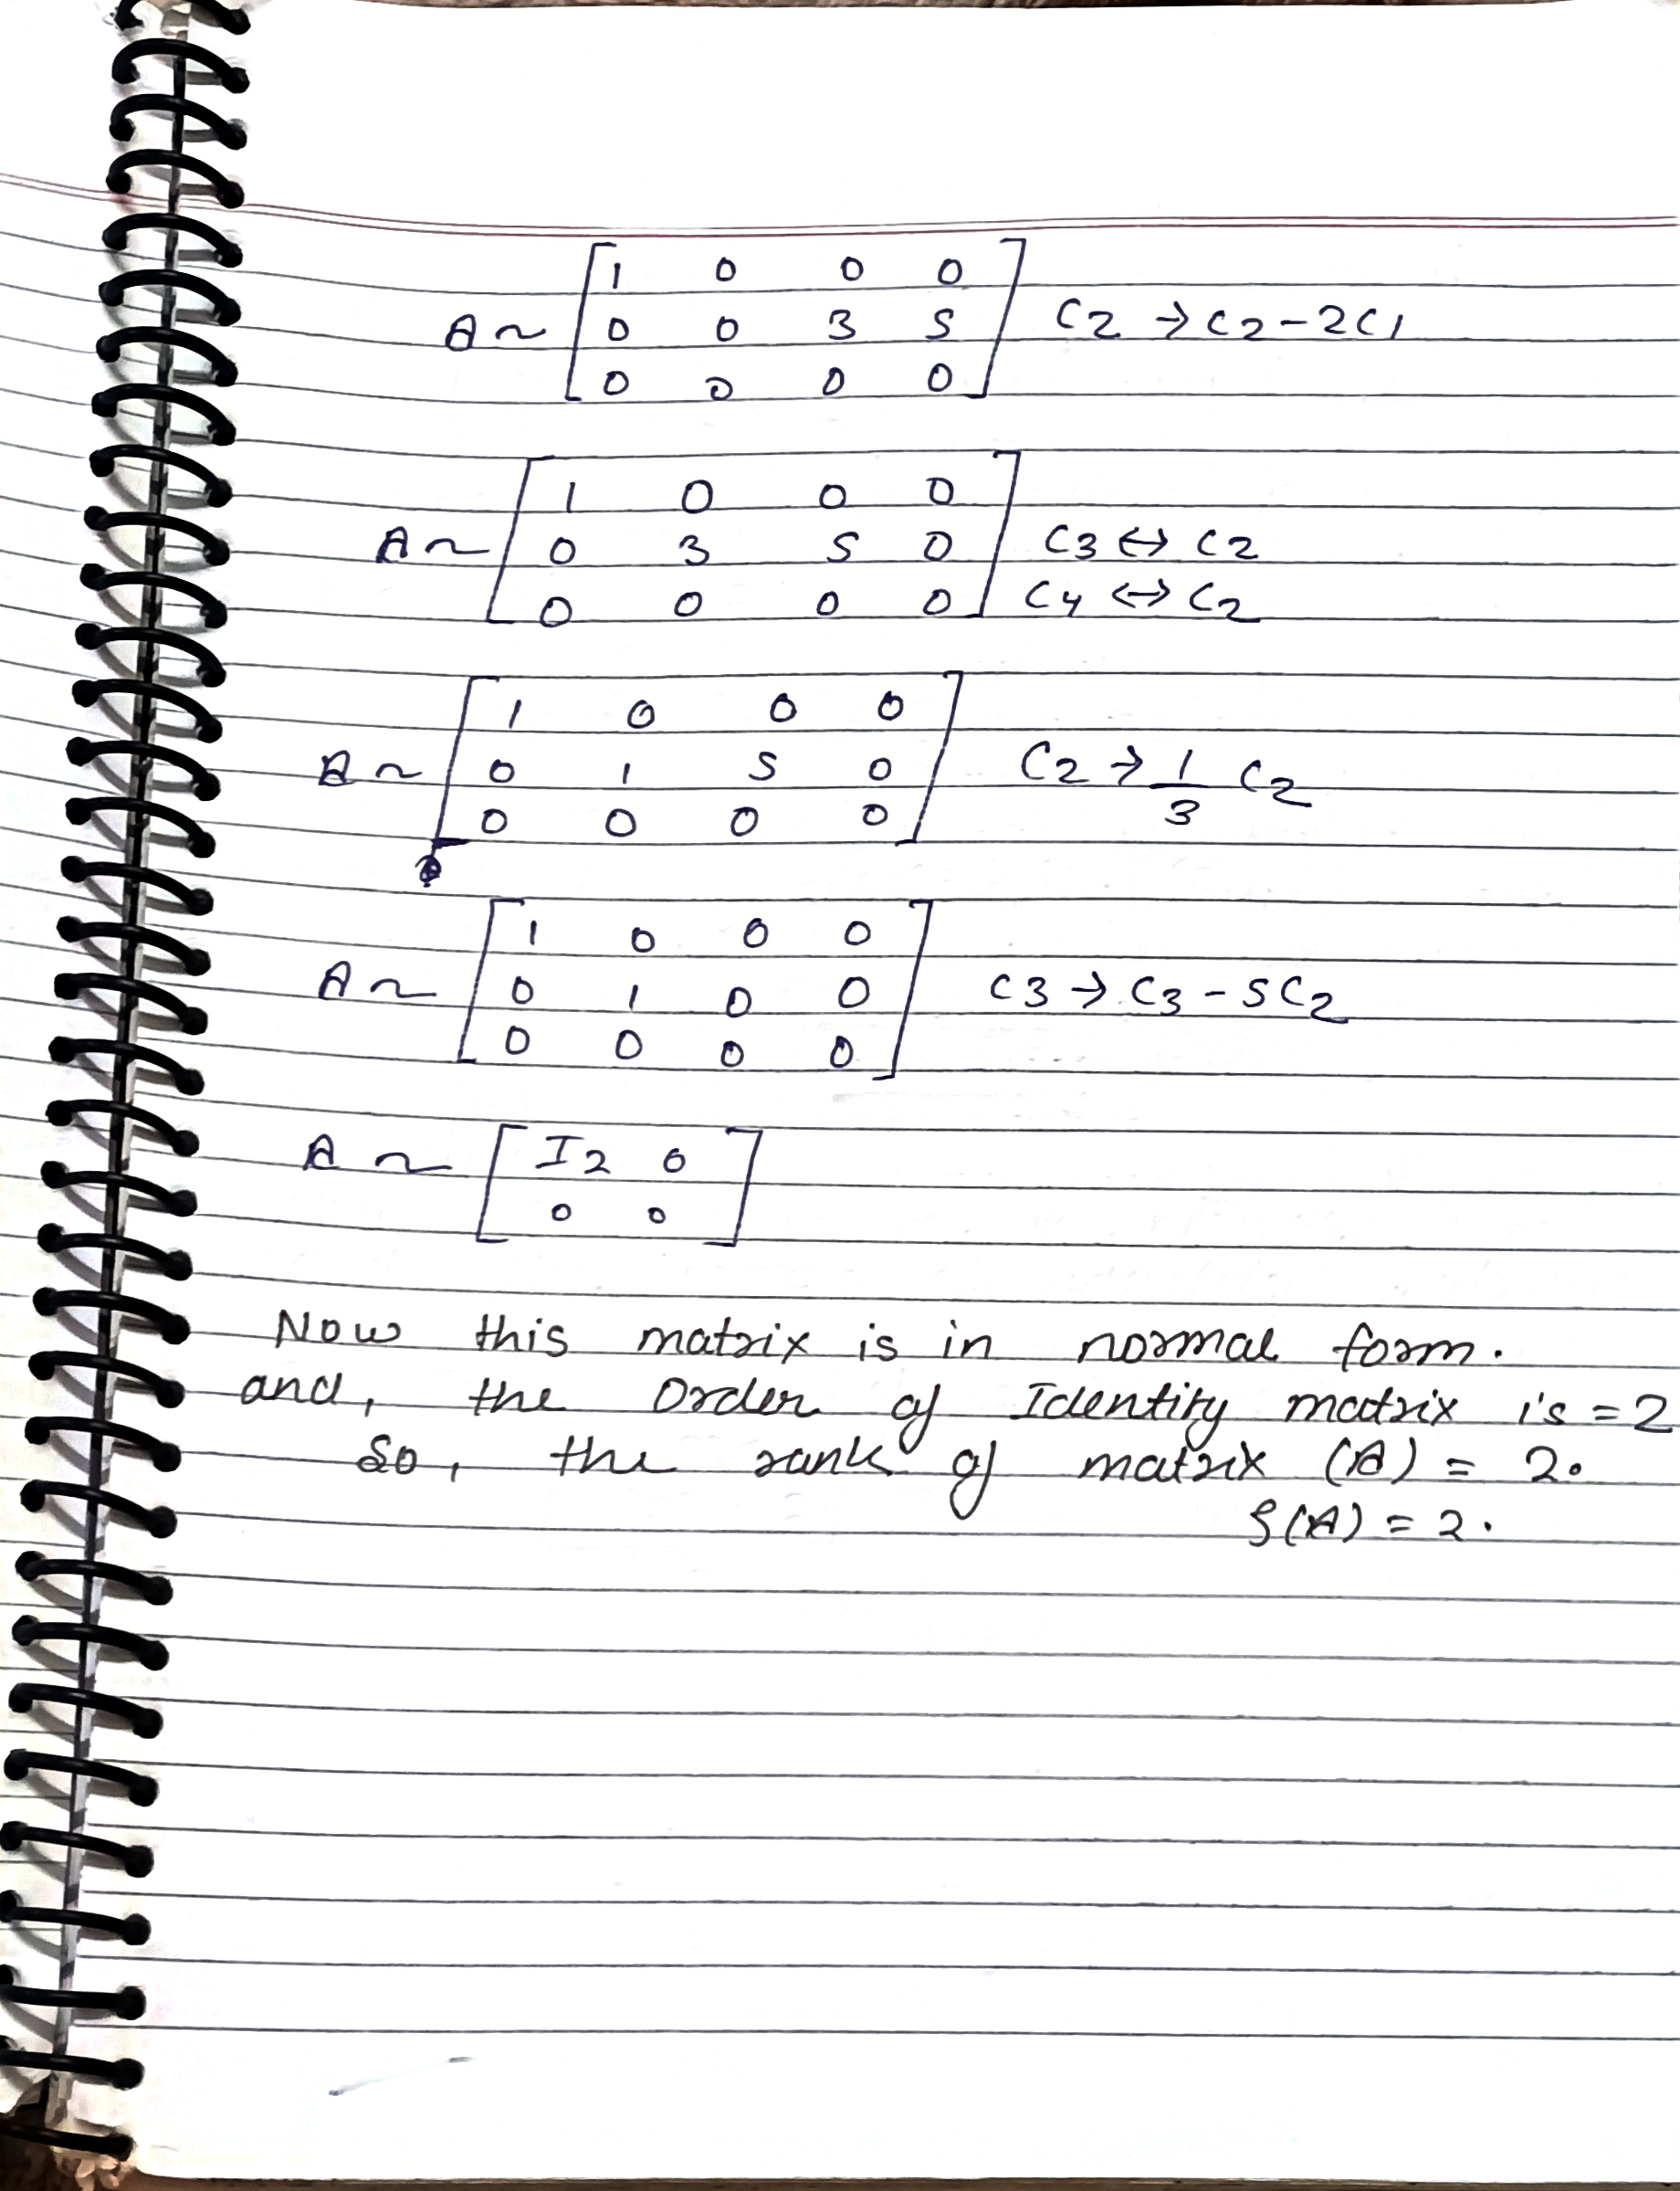 1 0 0 0
A ~ 0 0 3 5 C2 → C2 - 2C1
0 0 0 0
1 0 0 0
A ~ 0 3 5 0 C3 ↔ C2
0 0 0 0 C4 ↔ C2
1 0 0 0
A ~ 0 1 5 0 C2 → 1/3 C2
0 0 0 0
1 0 0 0
A ~ 0 1 0 0 C3 → C3 - 5C2
0 0 0 0
A ~ I2 0
0 0
Now this matrix is in normal form.
and, the Order of Identity matrix is = 2
So, the rank of matrix (A) = 2.
ρ(A) = 2.